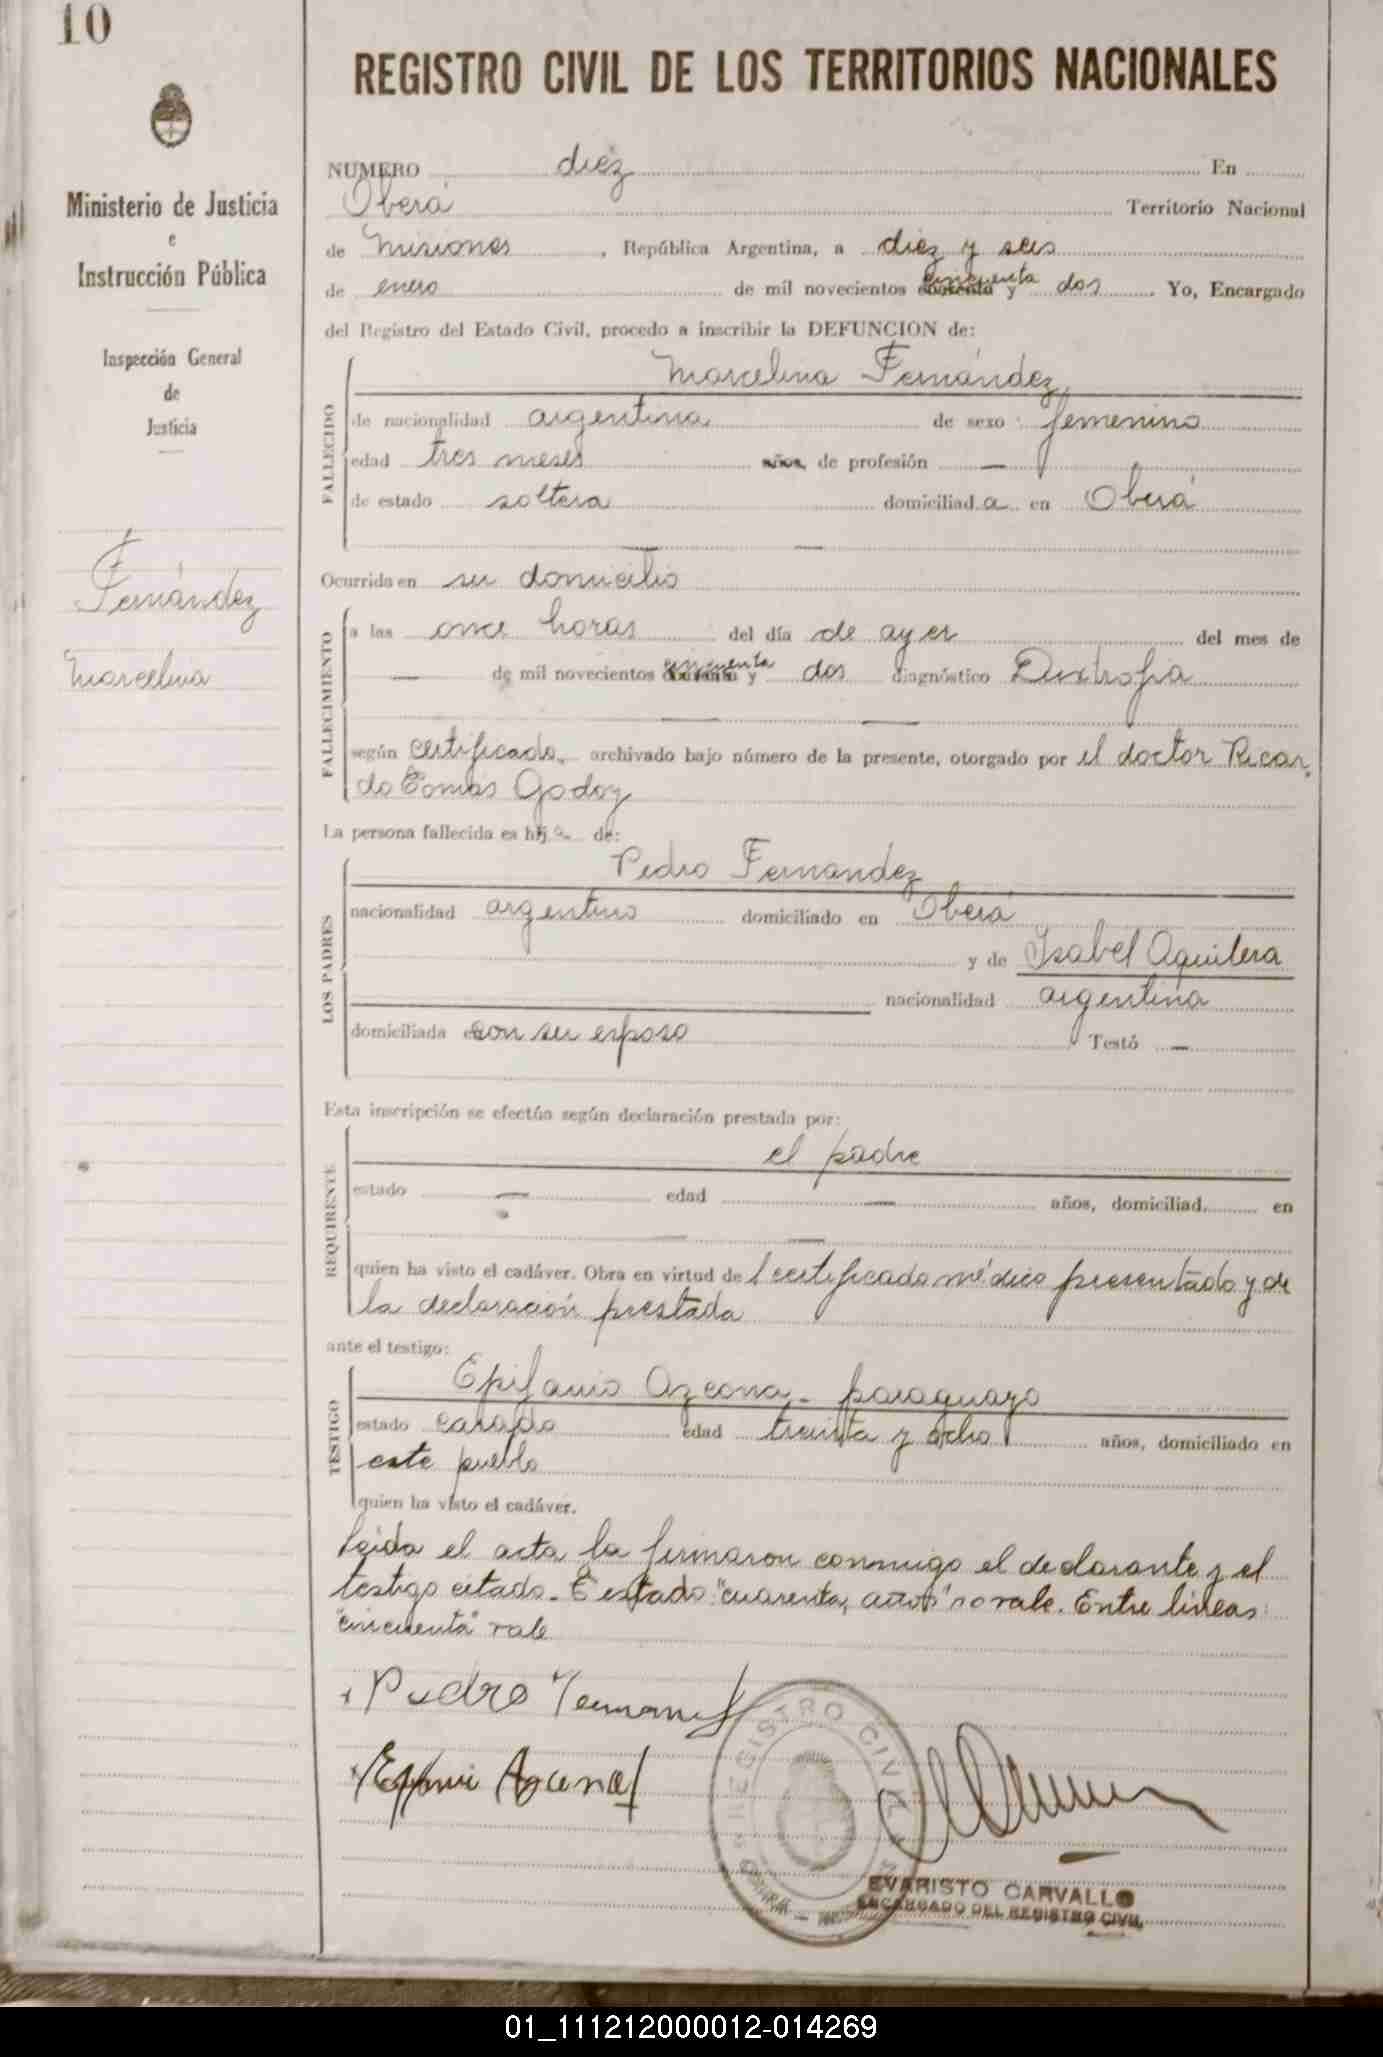 10
Ministerio de Justicia
e
Instrucción Pública
Inspección General
de
Justicia
Fernández
Marcelina
REGISTRO CIVIL DE LOS TERRITORIOS NACIONALES
NUMERO diez En
Oberá Territorio Nacional
de Misiones, República Argentina, a diez y seis
de enero de mil novecientos cuarenta cincuenta y dos. Yo, Encargado
del Registro del Estado Civil, procedo a inscribir la DEFUNCION de:
FALLECIDO
Marcelina Fernández
de nacionalidad argentina de sexo femenino
edad tres meses años, de profesión —
de estado soltera domiciliada en Oberá
—
Ocurrida en su domicilio
FALLECIMIENTO
a las once horas del día de ayer del mes de
— de mil novecientos cuarenta cincuenta y dos diagnóstico Distrofia
— —
según certificado, archivado bajo número de la presente, otorgado por el doctor Ricar
do Tomás Godoy
La persona fallecida es hija de:
LOS PADRES
Pedro Fernandez
nacionalidad argentino domiciliado en Oberá
y de Isabel Aquilera
nacionalidad argentina
domiciliada con su esposo Testó —
Esta inscripción se efectúa según declaración prestada por:
REQUIRENTE
el padre
estado — edad — años, domiciliad en
— —
quien ha visto el cadáver. Obra en virtud del certificado médico presentado y de
la declaración prestada
ante el testigo:
TESTIGO
Epifanio Azcona - paraguayo
estado casado edad treinta y ocho años, domiciliado en
este pueblo
quien ha visto el cadáver.
Leida el acta la firmaron conmigo el declarante y el
testigo citado. Testado: "cuarenta, años" no vale. Entre lineas:
"cincuenta" vale
Pedro Fernandez
Azcona
REGISTRO CIVIL
EVARISTO CARVALLO
ENCARGADO DEL REGISTRO CIVIL
01_111212000012-014269